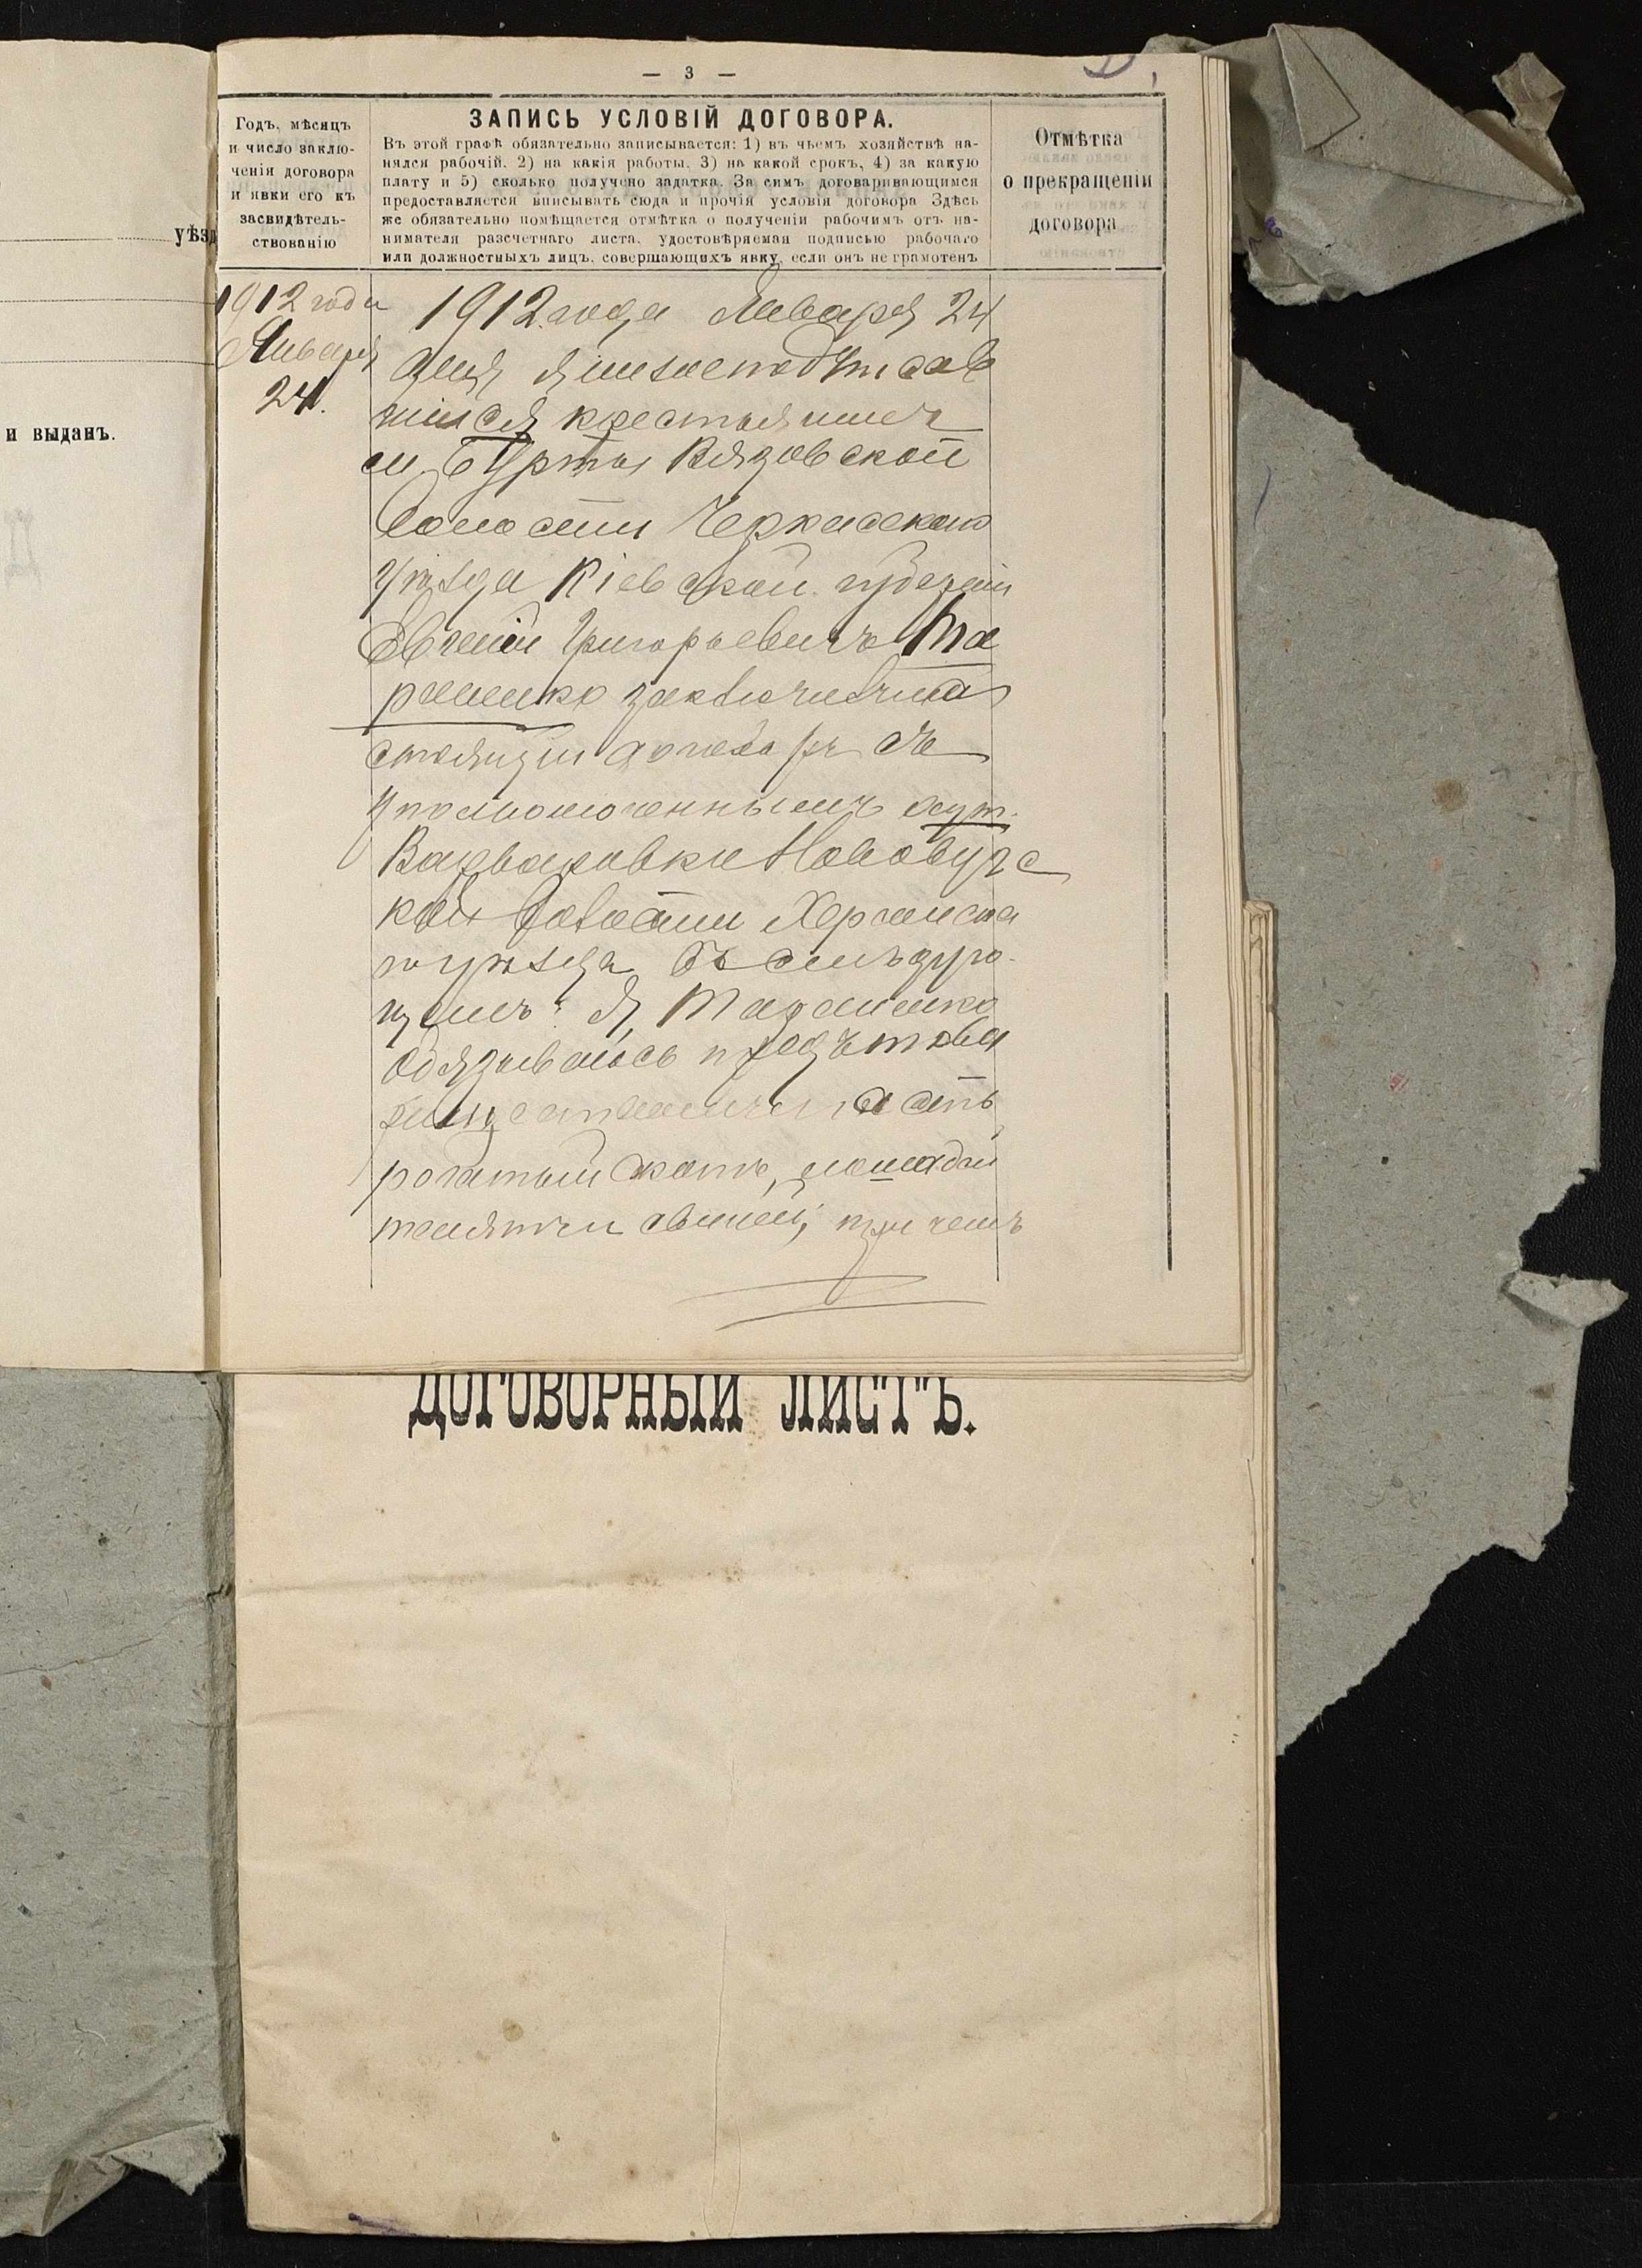 — 3 —
уѣзд
и выданъ.
Годъ, мѣсяцъ
и число заклю-
ченія договора
и явки его къ
засвидѣтель-
ствованію
ЗАПИСЬ УСЛОВІЙ ДОГОВОРА.
Въ этой графѣ обязательно записывается: 1) въ чьемъ хозяйствѣ на-
нялся рабочій. 2) на какія работы. 3) на какой срокъ, 4) за какую
плату и 5) сколько получено задатка. За симъ договаривающимся
предоставляется вписывать сюда и прочія условія договора Здѣсь
же обязательно помѣщается отмѣтка о полученіи рабочимъ отъ на-
нимателя разсчетнаго листа, удостовѣряемая подписью рабочаго
или должностныхъ лицъ, совершающихъ явку, если онъ не грамотенъ
Отмѣтка
о прекращеніи
договора
1912 года
Января
24.
1912 года Января 24
дня я нижеподписав
шійся крестьянинъ
м. Бурты Вязовской
волости Черкаскаго
уѣзда Кіевской губерніи
Григорьевичъ Та
раненко заключилъ на
стоящій договоръ съ
уполномоченнымъ хут.
Варваровки Новобугс
кой волости Херсонска
го уѣзда въ слѣдую-
щемъ: Я, Тараненко
обязываюсь
рогатый скотъ, лошади
телятъ и свиней, при чемъ
ДОГОВОРНЫЙ ЛИСТЪ.